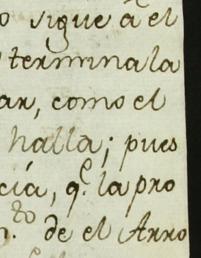 o sigue à el
termina la
ar, como el
halla; pues
cía, q.e la pro
n.to de el Arro